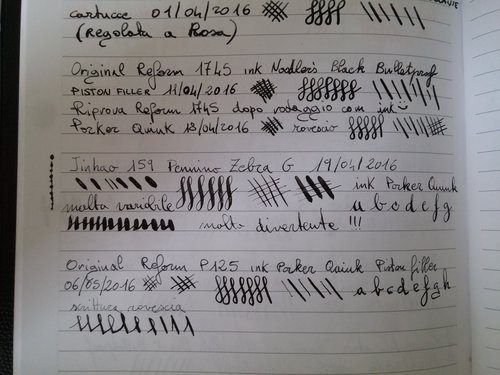 cartucce 01/04/2016
(Regolata a Rosa)
Original Reform 1745 ink Noodler's Black Bulletproof
PISTON FILLER 11/04/2016
Riprova Reform 1745 dopo rodaggio com ink
Parker Quink 13/04/2016 rovescio
Jinhao 159 Pennino Zebra G 19/04/2016
ink Parker Quink
molto variabile a b c d e f g
molto divertente !!!
Original Reform P125 ink Parker Quink Piston filler
06/05/2016 a b c d e f g h
scrittura rovescia